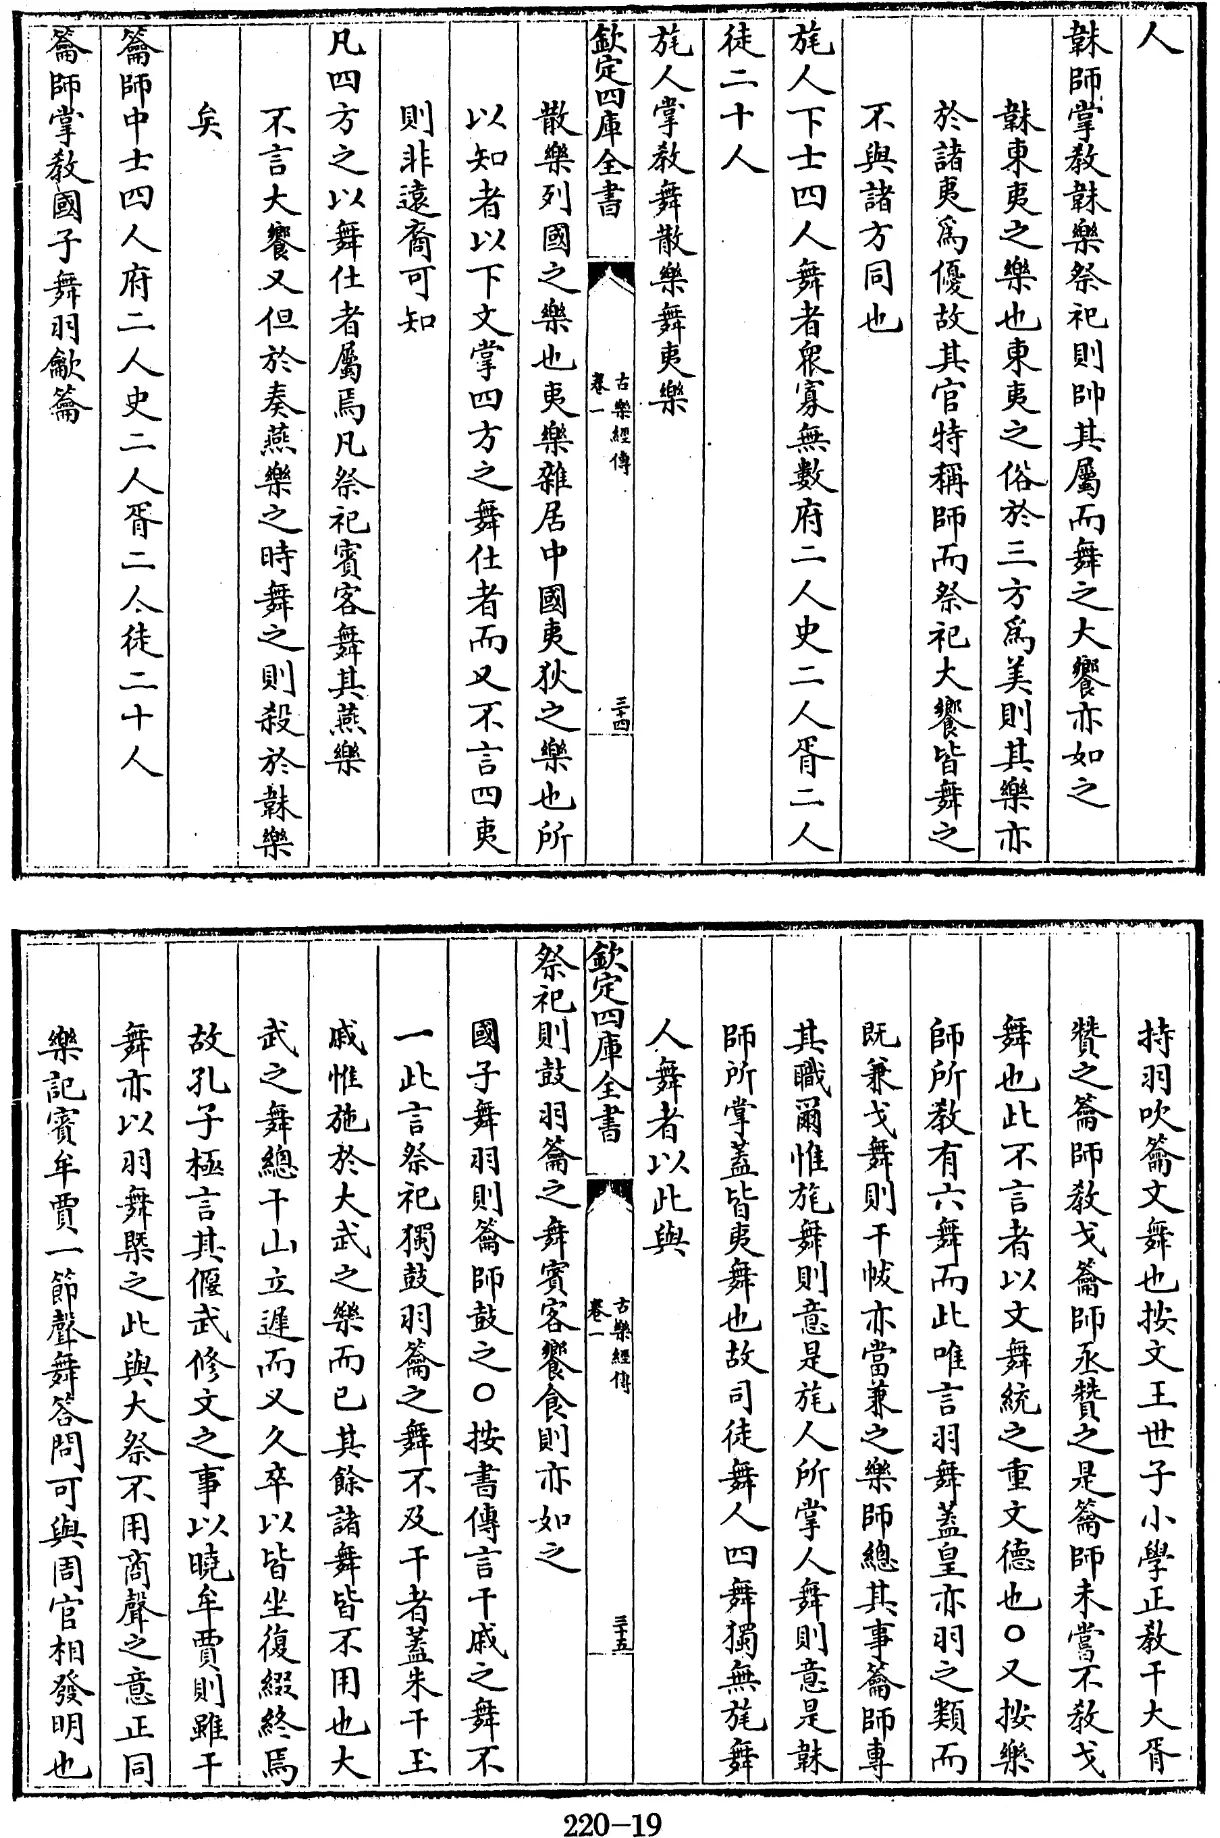 人
韎師掌敎韎樂祭祀則帥其屬而舞之大饗亦如之
韎東夷之樂也東夷之俗於三方爲美則其樂亦
於諸夷爲優故其官特稱師而祭祀大饗皆舞之
不與諸方同也
旄人下士四人舞者衆寡無數府二人史二人胥二人
徒二十人
旄人掌敎舞散樂舞夷樂
欽定四庫全書
古樂經傳
卷一
三十四
散樂列國之樂也夷樂雜居中國夷狄之樂也所
以知者以下文掌四方之舞仕者而又不言四夷
則非遠裔可知
凡四方之以舞仕者屬焉凡祭祀賓客舞其燕樂
不言大饗又但於奏燕樂之時舞之則殺於韎樂
矣
籥師中士四人府二人史二人胥二人徒二十人
籥師掌敎國子舞羽龡籥
持羽吹籥文舞也按文王世子小學正敎干大胥
贊之籥師敎戈籥師丞贊之是籥師未嘗不敎戈
舞也此不言者以文舞統之重文德也○又按樂
師所敎有六舞而此唯言羽舞蓋皇亦羽之類而
旣兼戈舞則干帗亦當兼之樂師總其事籥師專
其職爾惟旄舞則意是旄人所掌人舞則意是韎
師所掌蓋皆夷舞也故司徒舞人四舞獨無旄舞
人舞者以此與
欽定四庫全書
古樂經傳
卷一
三十五
祭祀則鼓羽籥之舞賓客饗食則亦如之
國子舞羽則籥師鼓之○按書傳言干戚之舞不
一此言祭祀獨鼓羽籥之舞不及干者蓋朱干玉
戚惟施於大武之樂而已其餘諸舞皆不用也大
武之舞總干山立遲而又久卒以皆坐復綴終焉
故孔子極言其偃武修文之事以曉牟賈則雖干
舞亦以羽舞槩之此與大祭不用商聲之意正同
樂記賓牟賈一節聲舞答問可與周官相發明也
220-19